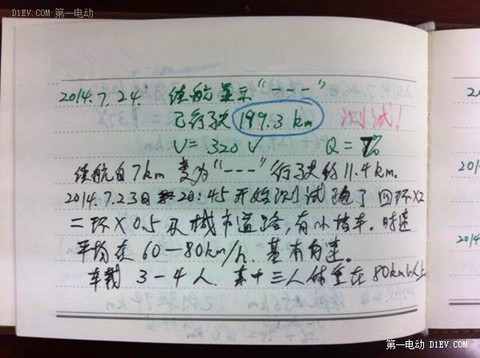 D1EV.COM 第一电动
2014.7.24. 续航显示“---”
已行驶 199.3 km 测试!
V=320V Q=7%
续航自7km 变为“---”行驶约11.4km.
2014.7.23日 20:45开始测试 随了 四环X2
二环X0.5及城市道路,有小堵车. 时速
平均在60—80km/h. 基本匀速.
车载 3-4人. 其中三人体重在80km以上
第一电动 D1EV.COM